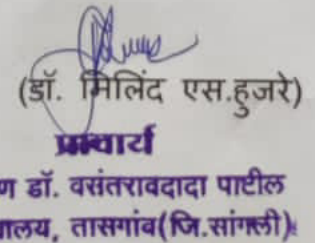 (डॉ. मिलिंद एस.हुजरे)
प्राचार्य
ण डॉ. वसंतरावदादा पाटील
ालय, तासगांव(जि.सांगली)